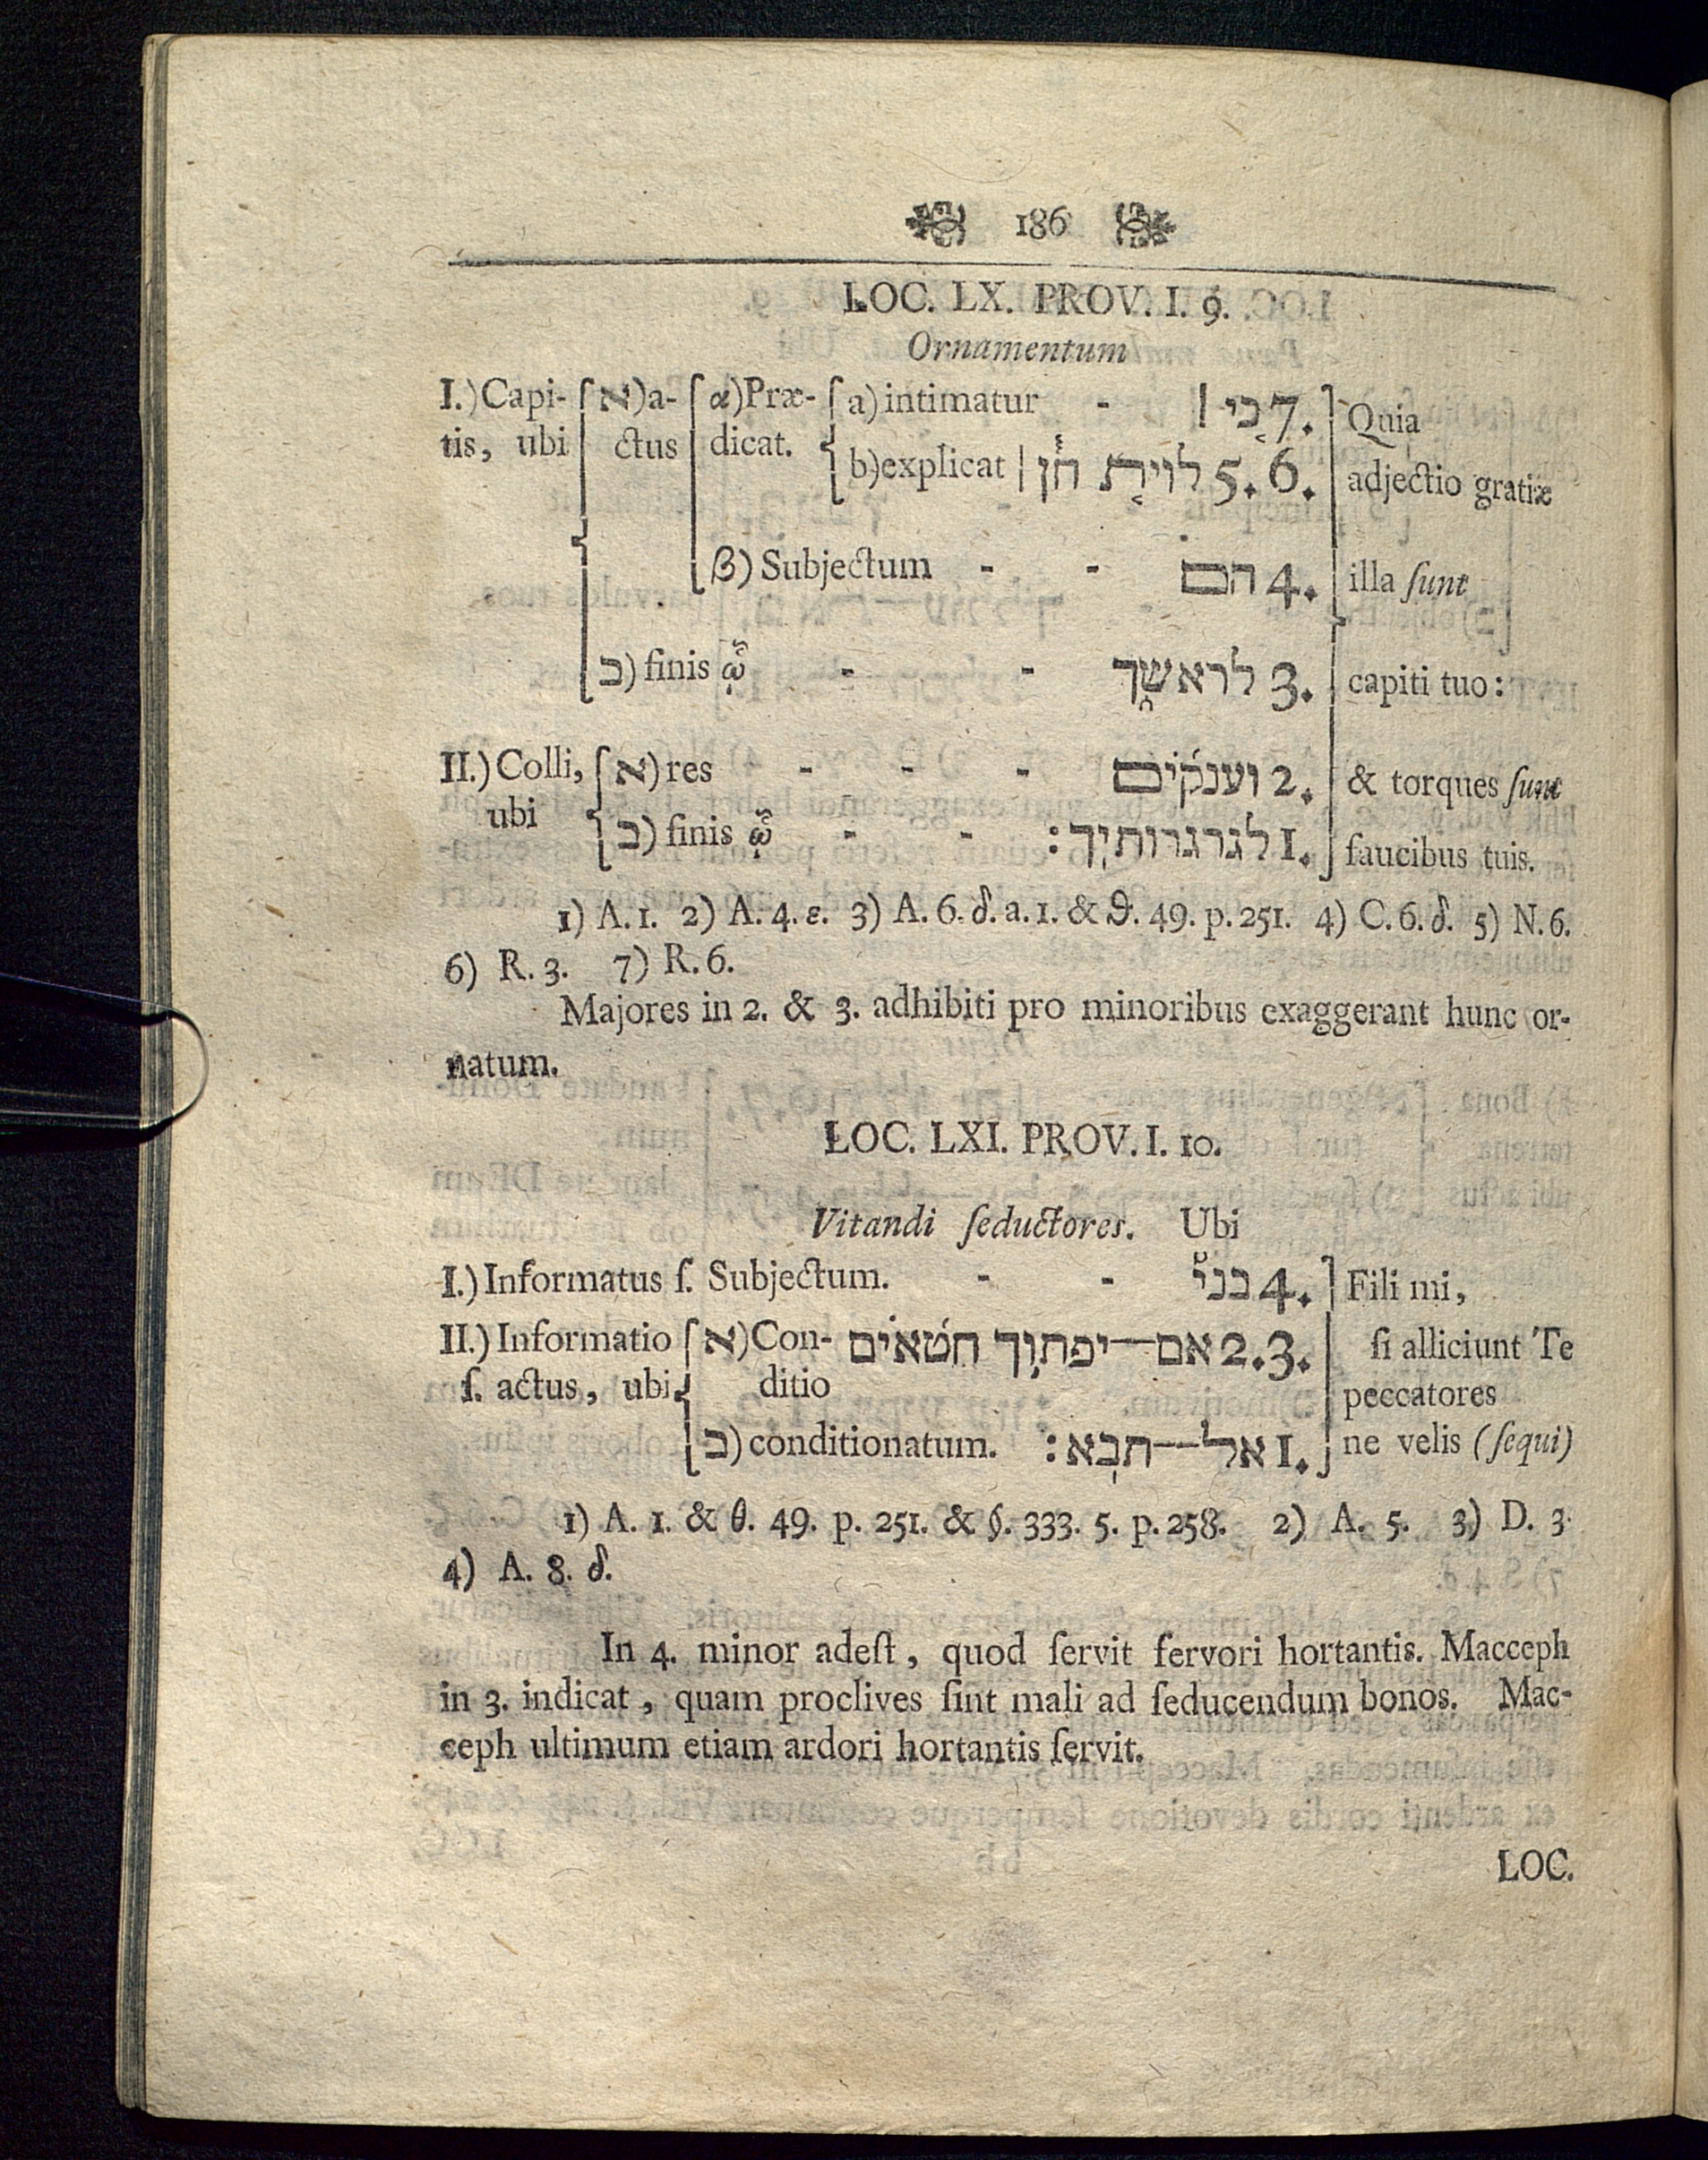 186
LOC. LX. PROV. I. 9.
Ornamentum
I.) Capi- א) a- α) Præ- a) intimatur - כי | 7. Quia
tis, ubi ctus dicat. b) explicat | לוית חן 5. 6. adjectio gratiæ
β) Subjectum - - הם 4. illa ſunt
ב) finis - - לראשך 3. capiti tuo:
II.) Colli, א) res - - - וענקים 2. & torques ſunt
ubi ב) finis - - לגרגרותיך: 1. faucibus tuis.
1) A. 1. 2) A. 4. ε. 3) A. 6. δ. a. 1. & ϑ. 49. p. 251. 4) C. 6. δ. 5) N. 6.
6) R. 3. 7) R. 6.
Majores in 2. & 3. adhibiti pro minoribus exaggerant hunc or-
natum.
LOC. LXI. PROV. I. 10.
Vitandi ſeductores. Ubi
I.) Informatus ſ. Subjectum. - - בני 4. Fili mi,
II.) Informatio א) Con- אם—יפתוך חטאים 2. 3. ſi alliciunt Te
ſ. actus, ubi ditio peccatores
ב) conditionatum. אל—תבא: 1. ne velis (ſequi)
1) A. 1. & θ. 49. p. 251. & §. 333. 5. p. 258. 2) A. 5. 3) D. 3.
4) A. 8. δ.
In 4. minor adeſt, quod ſervit fervori hortantis. Macceph
in 3. indicat, quam proclives ſint mali ad ſeducendum bonos. Mac-
ceph ultimum etiam ardori hortantis ſervit.
LOC.